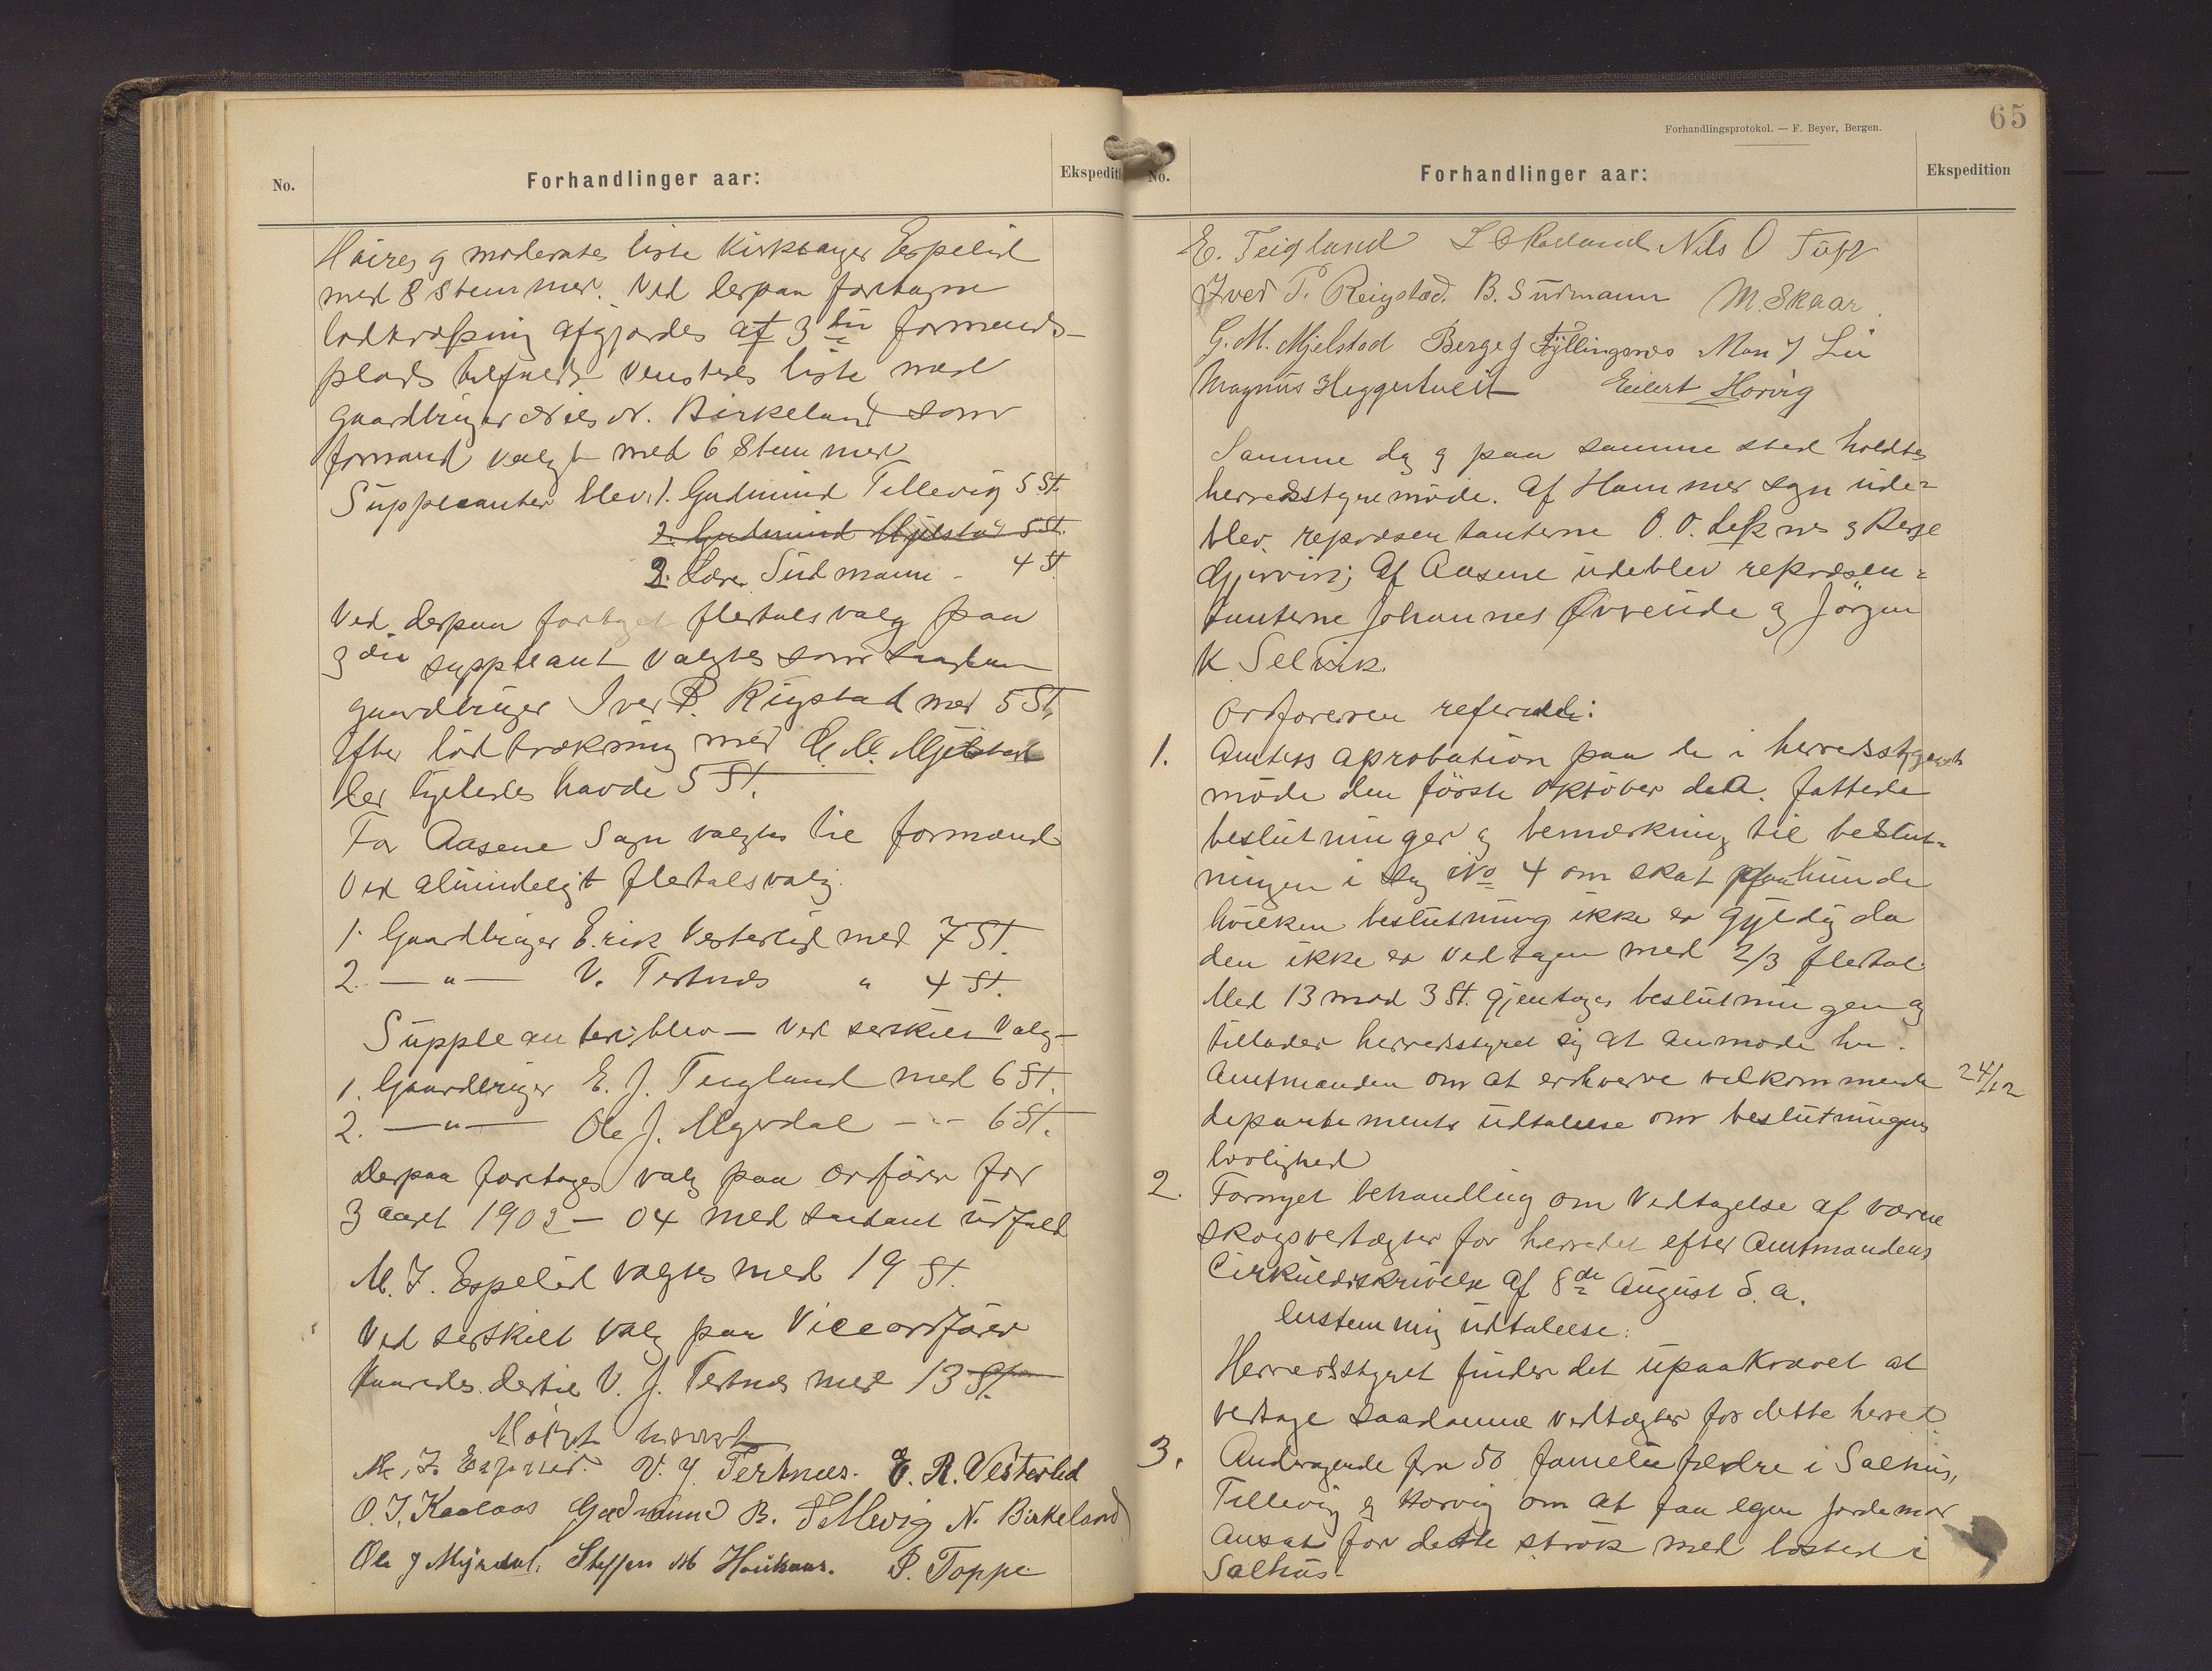 No.
Forhandlinger aar:
Ekspediti
Høires og moderates liste Kirksanger Espelid
med 8 Stemmer. Ved derpaa foretagen
lodtrækning afgjordes at 3die formands-
plads tilfaldt venstres liste med
gaardbruger Nils N. Birkeland som
formand valgt med 6 Stemmer
Suppleanter blev: 1. Gudmund Tellevig 5 St.
2. Gudmund Mjelstad 5 St.
2. Lærer Sudmann - 4 St.
Ved derpaa foretaget flertalsvalg paa
3die suppleant valgtes som saadan
gaardbruger Iver P. Reigstad med 5 St.
efter lodtrækning med G. M. Mjelstad
der ligeledes havde 5 St.
For Aasene Sogn valgtes til formænd
Ved almindeligt flertalsvalg.
1. Gaardbruger Erik Vesterlid med 7 St.
2. — " — V. Tertnæs " 4 St.
Suppleanter blev — ved serskilt Valg —
1. Gaardbruger E. J. Teigland med 6 St.
2. — " — Ole J. Myrdal - " - 6 St.
Derpaa foretages valg paa ordfører for
3 aaret 1902 — 04 med saadant udfald
M. J. Espelid valgtes med 19 St.
Ved serskilt valg paa Viceordfører
kaaredes dertil V. J. Tertnæs med 13 St.
Mødet hævet
M. J. Espelid. V. J. Tertnæs. E. R. Vesterlid
O. J. Kaalaas Gudmund R. Tellevig N. Birkeland
Ole J Myrdal. Steffen M Haukaas. P. Toppe
65
Forhandlingsprotokol. — F. Beyer, Bergen.
No.
Forhandlinger aar:
Ekspedition
E. Teigland L C Rødland Nils O
Iver P. Reigstad. B. Sudmann M. Skaar.
G. M. Mjelstad Berge J Fyllingsnes Mon J Li
Magnus Heggertveit Eilert Horvig
Samme dag og paa samme sted holdtes
herredsstyremøde. Af Hammer sogn ude-
blev repræsentanterne O. O. Leknes og Berge
Gjervin; Af Aasene udeblev repræsen-
tanterne Johannes Øvreeide og Jørgen
K. Selvik.
Ordføreren refererede:
1. Amtets aprobation paa de i herredsstyrets
møde den første Oktober d. A. fattede
beslutninger og bemerkning til beslut-
ningen i sag No 4 om skat paa hunde
hvilken beslutning ikke er gyldig da
den ikke er vedtagen med 2/3 flertal.
Med 13 mod 3 St. gjentages beslutningen og
tillader herredsstyret sig at anmode hr.
Amtmanden om at erhverve vedkommende
24/12
departements udtalelse om beslutningens
lovlighed
2. Fornyet behandling om Vedtagelse af værne
skogsvedtægter for herredet efter Amtmandens
Cirkulærskrivelse af 8de August d. a.
Enstemmig udtalelse:
Herredsstyret finder det upaakrævet at
vedtage saadanne vedtægter for dette herred
3. Andragende fra 50 familiefædre i Salhus,
Tellevig og Horvig om at faa egen jordemor
ansat for dette strøk med bosted i
Salhus.